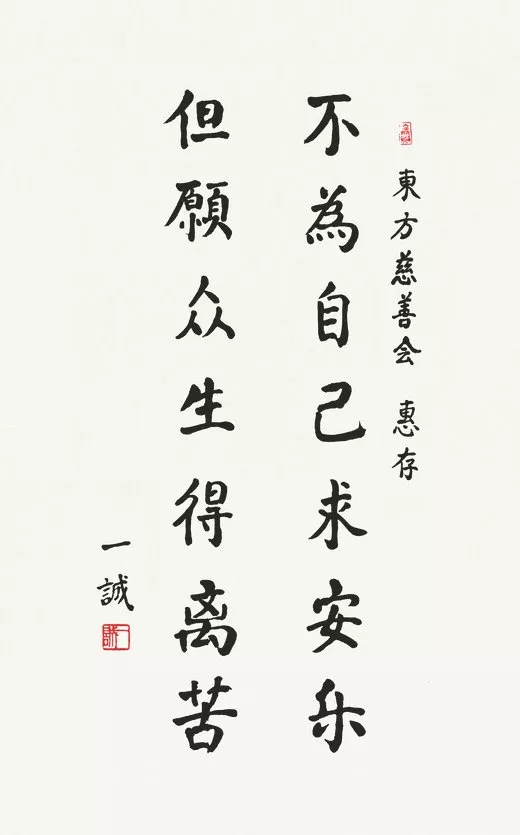 東方慈善会 惠存
不為自己求安乐
但願众生得离苦
一誠